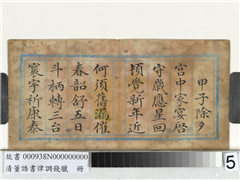 甲子除夕
宮中家宴曆
守歲應星回
頓覺新年近
何須舊漏催
春韶舒五日
斗柄轉三台
寰宇祈康泰
故書 000938N000000000
清董誥書律調錢臘 冊
5